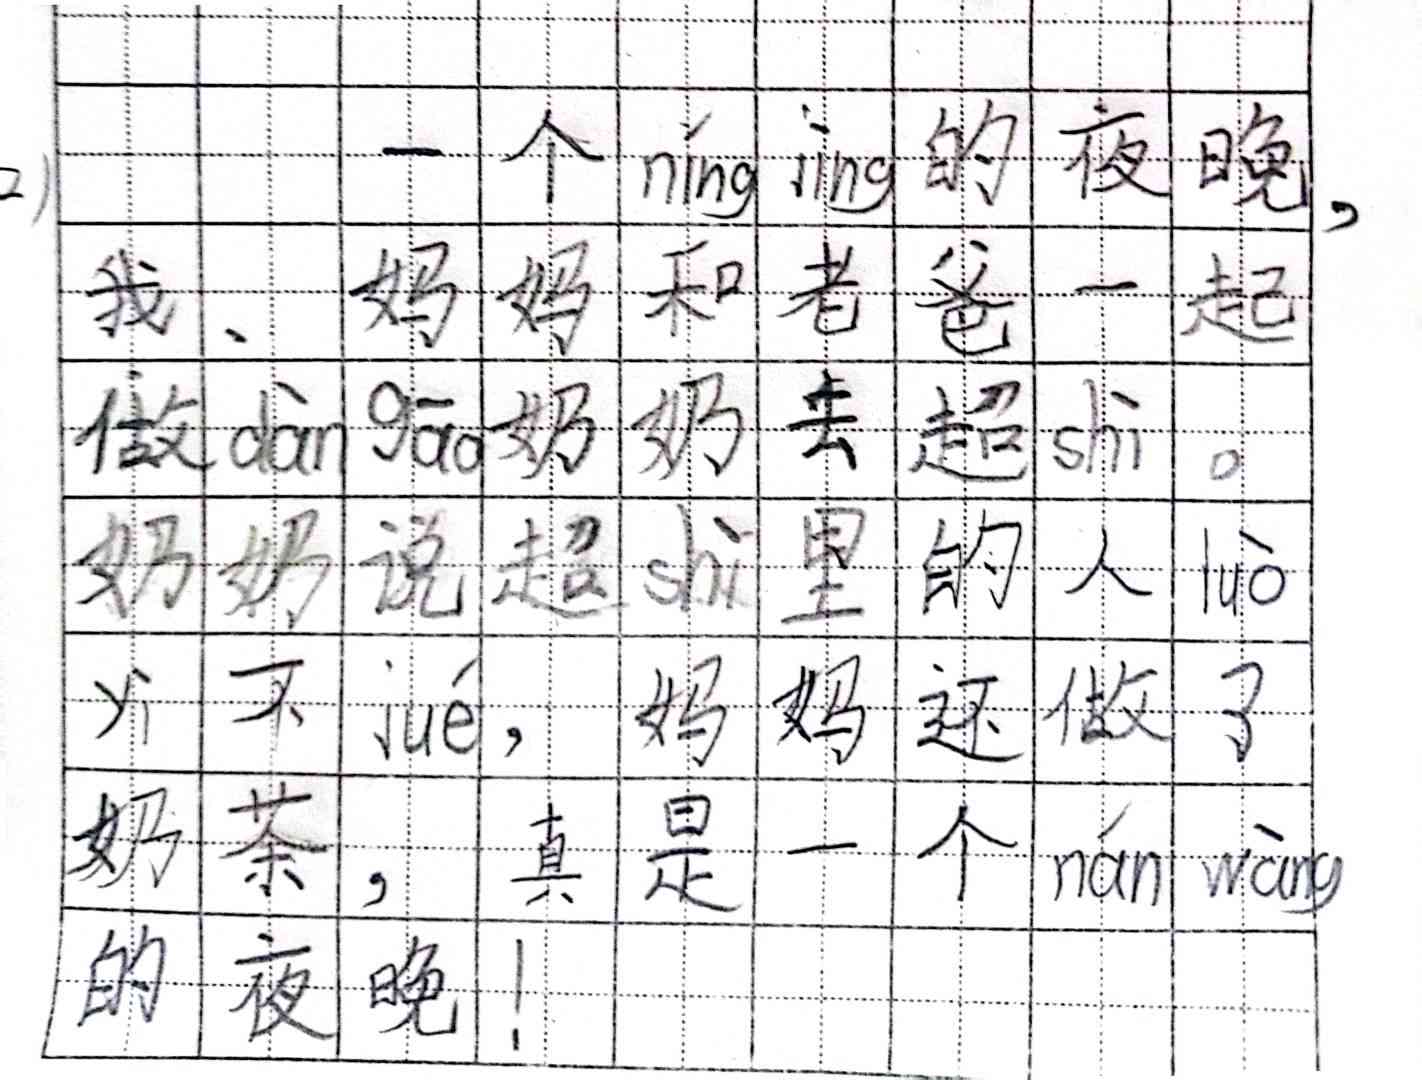 一个níng jìng的夜晚，
我、妈妈和老爸一起
做dàn gāo奶奶去超shì。
奶奶说超shì里的人luò
yì不jué，妈妈还做了
奶茶，真是一个nán wàng
的夜晚！